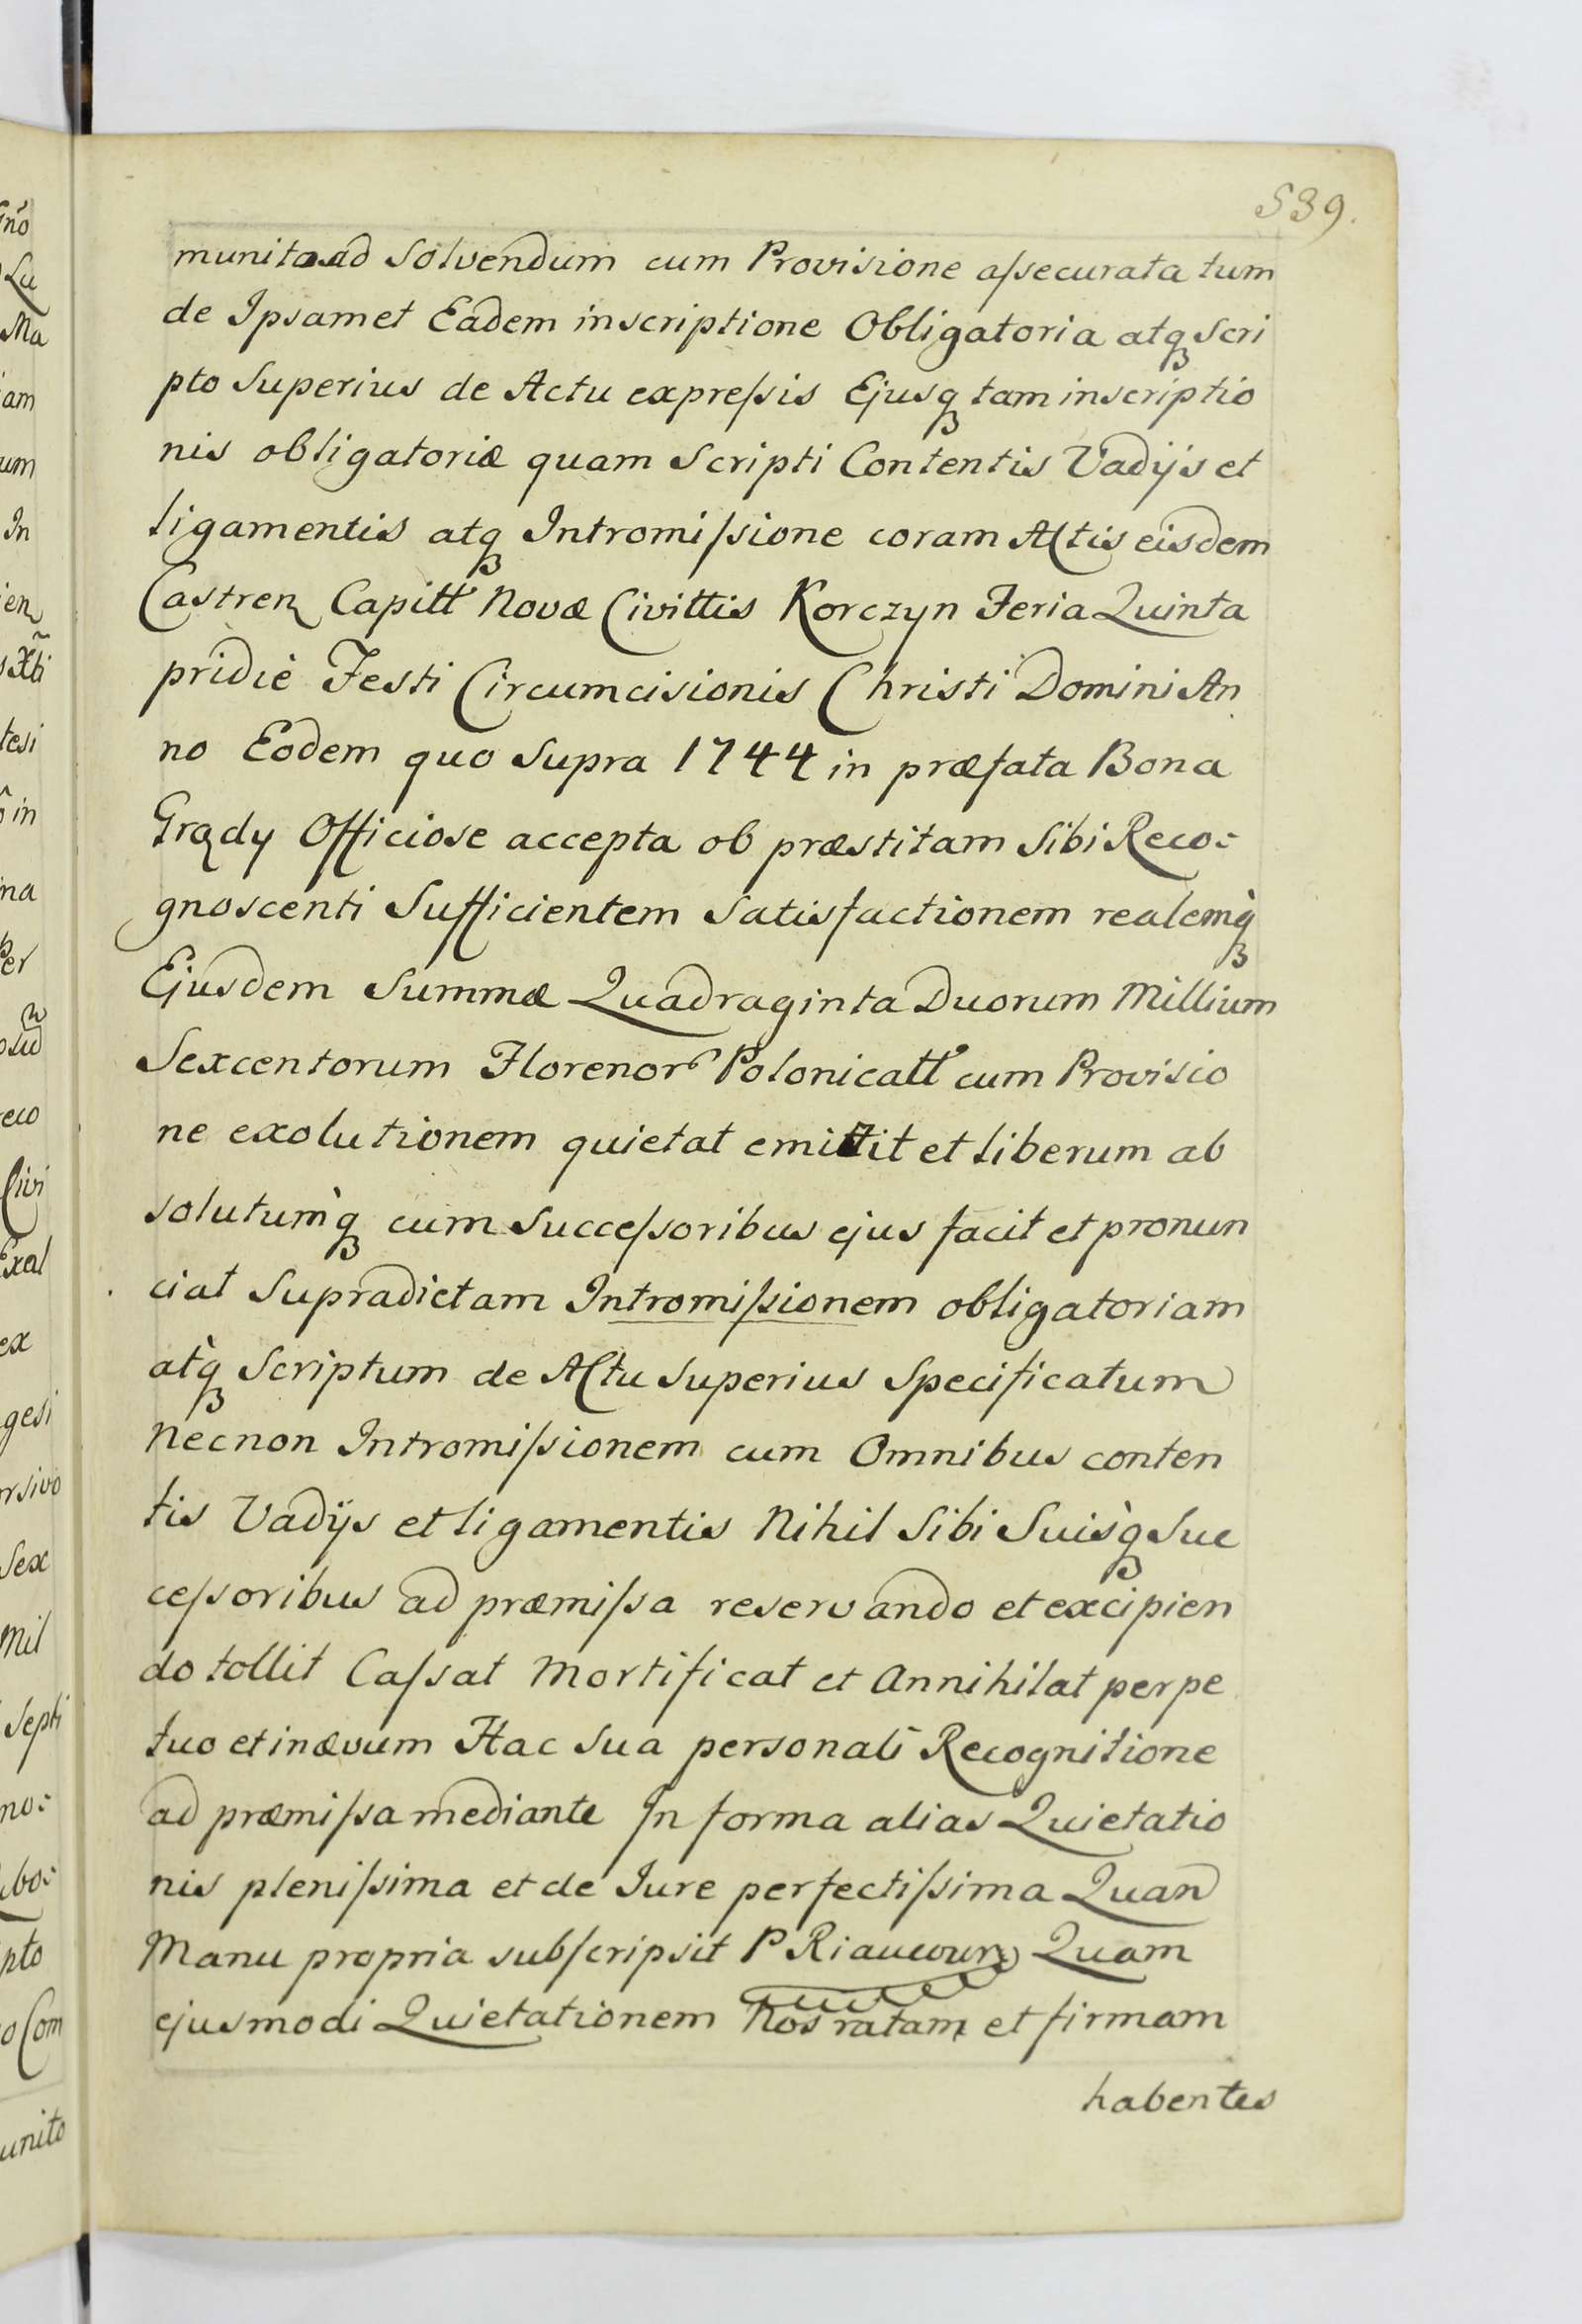 539.
munito ad Solvendum cum Provisione aſsecurata tum
de Ipsamet Eadem inscriptione Obligatoria atqꝫ Scri
pto Superius de Actu expreſsis Ejusqꝫ tam inscriptio
nis obligatoriæ quam Scripti Contentis Vadijs et
ligamentis atqꝫ Intromiſsione coram Actis eisdem
Castren Capittl Novæ Civittis Korczyn Feria Quinta
pridie Festi Circumcisionis Christi Domini An
no Eodem quo Supra 1744 in præfata Bona
Grądy Officiose accepta ob præstitam Sibi Reco:
gnoscenti Sufficientem Satisfactionem realemqꝫ
Ejusdem Summæ Quadraginta Duorum Millium
Sexcentorum Florenor Polonicatt cum Provisio
ne exolutionem quietat emittit et liberum ab
solutumqꝫ cum Succeſsoribus ejus facit et pronun
ciat Supradictam Intromiſsionem obligatoriam
atqꝫ Scriptum de Actu Superius Specificatum
Necnon Intromiſsionem cum Omnibus conten
tis Vadijs et ligamentis Nihil Sibi Suisqꝫ Suc
ceſsoribus ad præmiſsa reservando et excipien
do tollit Caſsat Mortificat et Annihilat perpe
tuo et in ævum Hac Sua personali Recognitione
ad præmiſsa mediante In forma alias Quietatio
nis pleniſsima et de Iure perfectiſsima Quan
Manu propria subſcripsit P Riaucour Quam
ejusmodi Quietationem Nos ratam et firmam
habentes